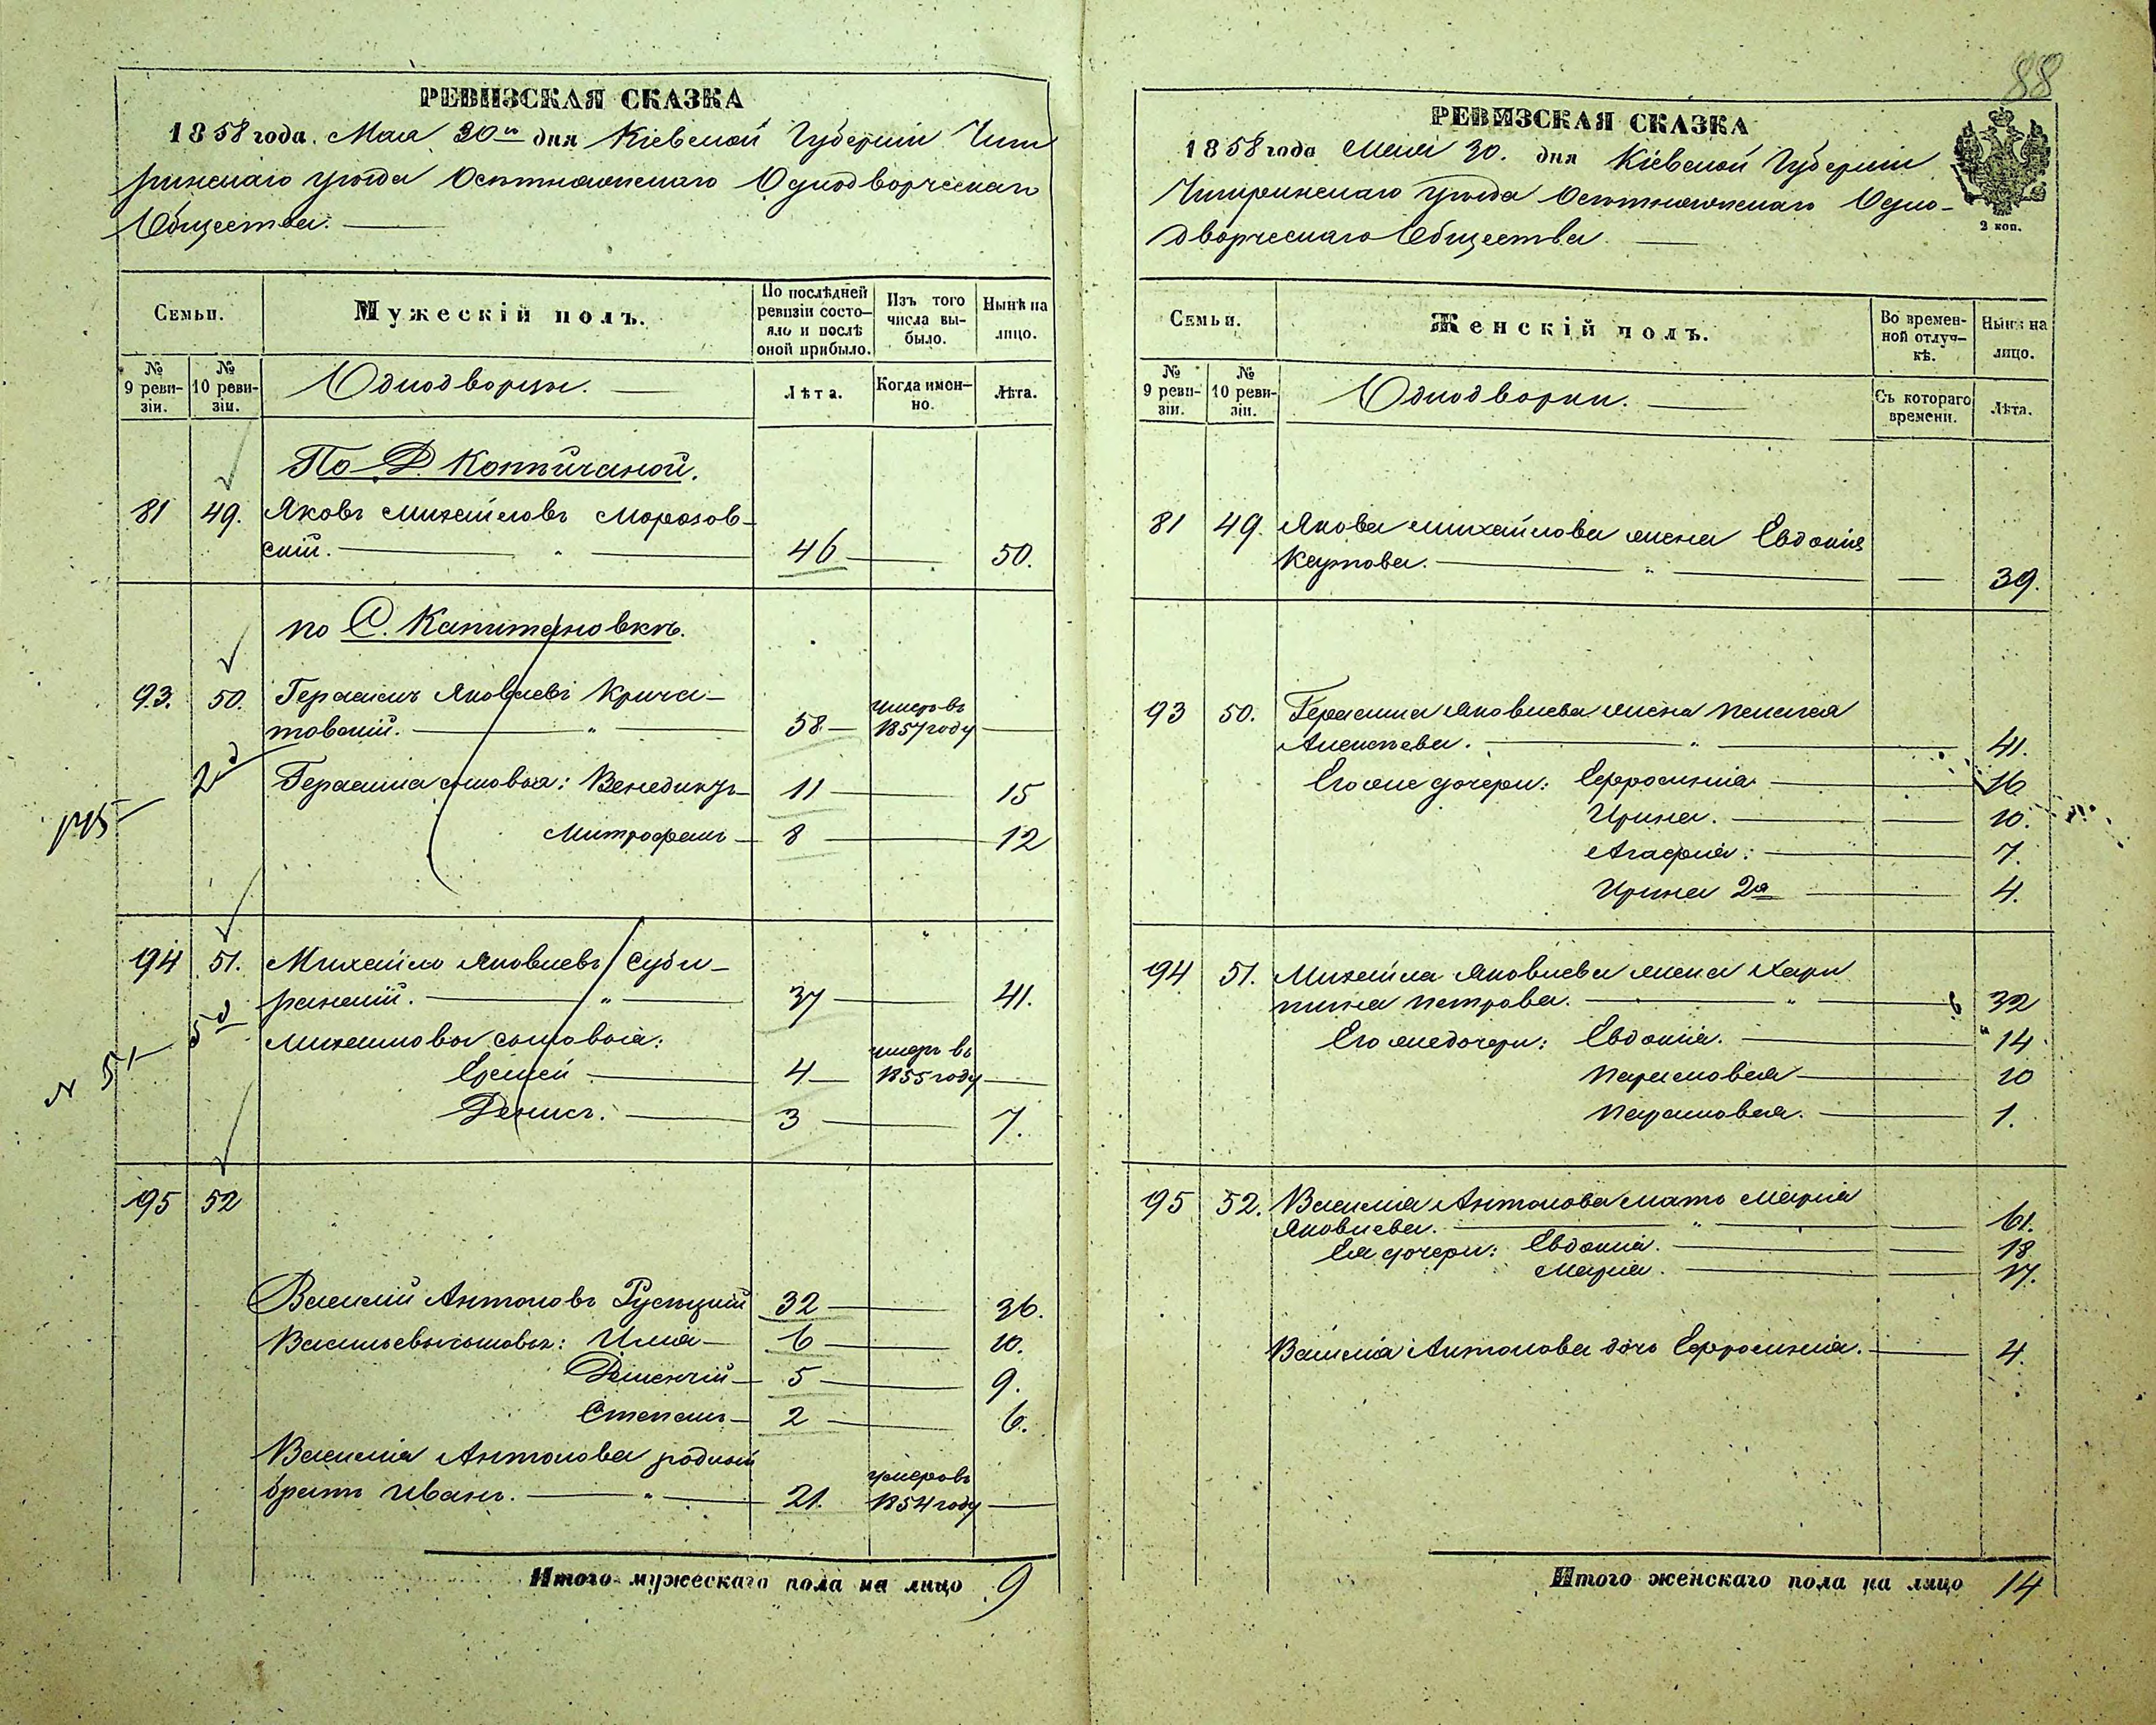 88
РЕВИЗСКАЯ СКАЗКА
1858 года. Мая 30го дня Кіевской Губерніи Чиги
ринскаго уѣзда Осотнянскаго Однодворческаго
Общества.
Семьи.
Мужескій полъ.
По послѣдней ревизіи состояло и послѣ оной прибыло.
Изъ того числа выбыло.
Нынѣ на лицо.
№ 9 ревизіи.
№ 10 ревизіи.
Однодворцы.
Лѣта.
Когда именно.
Лѣта.
По Д.
81 49. Яковъ Михайловъ Морозов-
скій. 46 50.
по С. Капитановкѣ.
93. 50. Герасимъ Яковлевъ Крича-
товскій. 58 умеръ въ 1857 году
Герасима сыновья: Венедиктъ 11 15
Митрофанъ 8 12
194 51. Михайло Яковлевъ
37 41.
Михайловы сыновья:
Ерем­ей 4 умеръ въ 1855 году
Денисъ. 3 7.
195 52
Василий Антоновъ 32 36.
Васильевы сыновья: Илія 6 10.
5 9.
Степанъ 2 6.
Василія Антонова родный
братъ Иванъ. 21. умеръ въ 1854 году
Итого мужескаго пола на лицо 9
РЕВИЗСКАЯ СКАЗКА
1858 года Мая 30. дня Кіевской Губерніи
Чигиринскаго уѣзда Осотнянскаго Одно-
дворческаго Общества.
2 коп.
Семьи.
Женскій полъ.
Во временной отлучкѣ.
Нынѣ на лицо.
№ 9 ревизіи.
№ 10 ревизіи.
Однодворки.
Съ котораго времени.
Лѣта.
81 49. Якова Михайлова жена Евдокія
Карпова. 39.
93 50. Герасима Яковлева жена Пелагея
Алексѣева. 41.
Его же дочери: Ефросинія 16
Ирина. 10.
Агафія. 7.
Ирина 2я 4.
194 51. Михайла Яковлева жена Хари
тина Петрова. 32
Его же дочери: Евдокія. 14
Парасковея 10
Парасковея. 1.
195 52. Василія Антонова мать Марія
Яковлева. 61.
Ея дочери: Евдокія. 18
Марія. 17.
Василія Антонова дочь Ефросинія. 4.
Итого женскаго пола на лицо 14